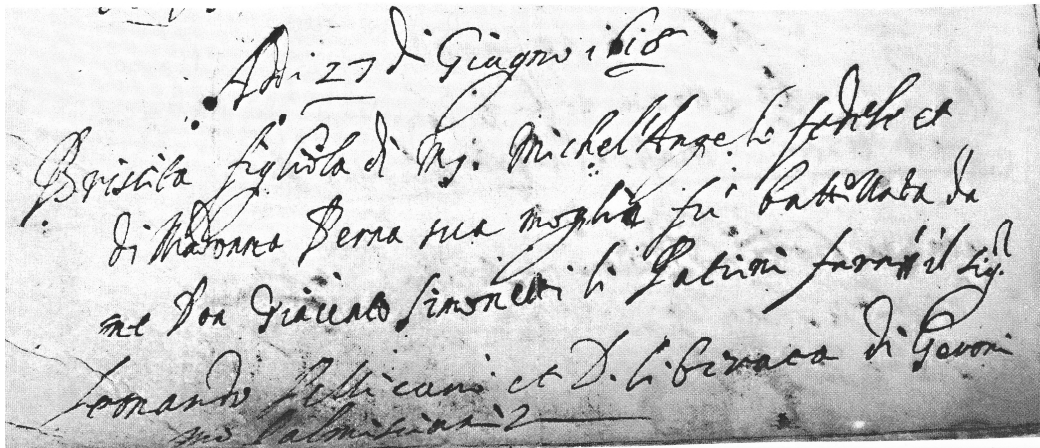 Adi 27 di Giugno 1618
Priscita figliola di Mg. Michel'Angelo fedele et
di Madonna Perna sua moglie fu battizzata da
me Don Diacinto Simonetti li Patrini furno il Sig.r
Leonardo Pellicani et D. Liberata di Geroni
mo